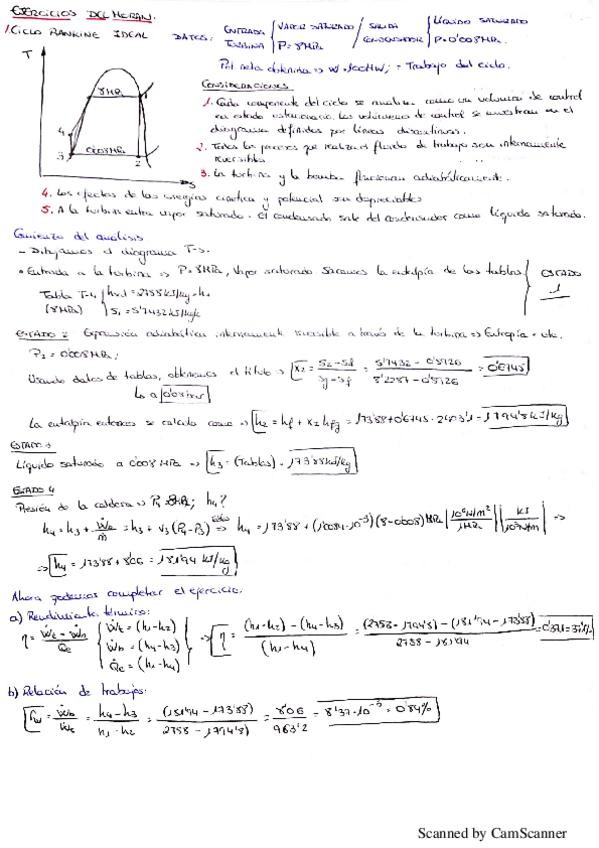 EJERCICIOS DEL MORAN.
1/CICLO RANKINE IDEAL DATOS: ENTRADA TURBINA { VAPOR SATURADO P=8MPa / SALIDA CONDENSADOR { LÍQUIDO SATURADO P=0'008MPa.
Pot neta obtenida => W=100MW; = Trabajo del ciclo.
CONSIDERACIONES
T
8MPa
0'008MPa
4
3
1
2
S
1. Cada componente del ciclo se analiza como un volumen de control
en estado estacionario. Los volúmenes de control se muestran en el
diagrama definidos por líneas discontinuas.
2. Todos los procesos que realiza el fluido de trabajo son internamente
reversibles
3. La turbina y la bomba funcionan adiabáticamente.
4. Los efectos de las energías cinética y potencial son despreciables
5. A la turbina entra vapor saturado. El condensado sale del condensador como líquido saturado.
Comienzo del análisis
- Dibujamos el diagrama T-s.
• Entrada a la turbina => P=8MPa, Vapor saturado Sacamos la entalpía de las tablas } ESTADO 1
Tabla T-4 (8MPa) { = 2758 kJ/kg = h1
S1 = 5'7432 kJ/kgK
ESTADO 2: Expansión adiabática internamente reversible a través de la turbina => Entropía = cte.
P2 = 0'008MPa;
Usando datos de tablas, obtenemos el título => x2 = S2-Sf / Sg-Sf = 5'7432 - 0'5926 / 8'2287 - 0'5926 = 0'6745
La entalpía entonces se calcula como => h2 = hf + x2 hfg = 173'88 + 0'6745 · 2403'1 = 1794'8 kJ/kg
ESTADO 3
Líquido saturado a 0'008 MPa => h3 = (Tablas) = 173'88 kJ/kg
ESTADO 4
Presión de la caldera => P4 = 8MPa; h4?
h4 = h3 + Ẇb/ṁ = h3 + v3 (P4-P3) => h4 = 173'88 + (1'0084·10⁻³)(8-0'008)MPa |10⁶N/m² / 1MPa| |kJ / 10³N·m| =>
=> h4 = 173'88 + 8'06 = 181'94 kJ/kg
Ahora podemos completar el ejercicio:
a) Rendimiento térmico:
η = Ẇt - Ẇb / Q̇e { Ẇt = (h1-h2) Ẇb = (h4-h3) Q̇e = (h1-h4) } => η = (h1-h2) - (h4-h3) / (h1-h4) = (2758-1794'8) - (181'94-173'88) / 2758 - 181'94 = 0'371 = 37'1%
b) Relación de trabajos:
rw = Ẇb / Ẇt = h4-h3 / h1-h2 = (181'94 - 173'88) / (2758 - 1794'8) = 8'06 / 963'2 = 8'37·10⁻³ = 0'84%
Scanned by CamScanner